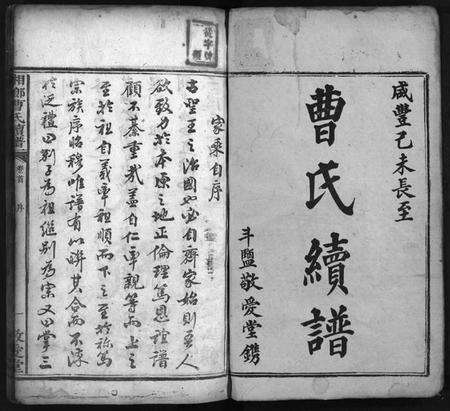 咸豐己未長至
曹氏續譜
斗鹽敬愛堂鐫
家乘自序
古聖王之治國也必自齊家始則吾人
欲致力於本原之地正倫理篤恩誼譜
顧不綦重哉蓋自仁率親等而上之
至於祖自義率祖順而下之至於禰為
宗族序昭穆惟譜有以聯其合而不渙
記禮曰別子為祖繼別為宗又曰掌三
湘鄉曹氏續譜
卷首
序
一
敬愛堂